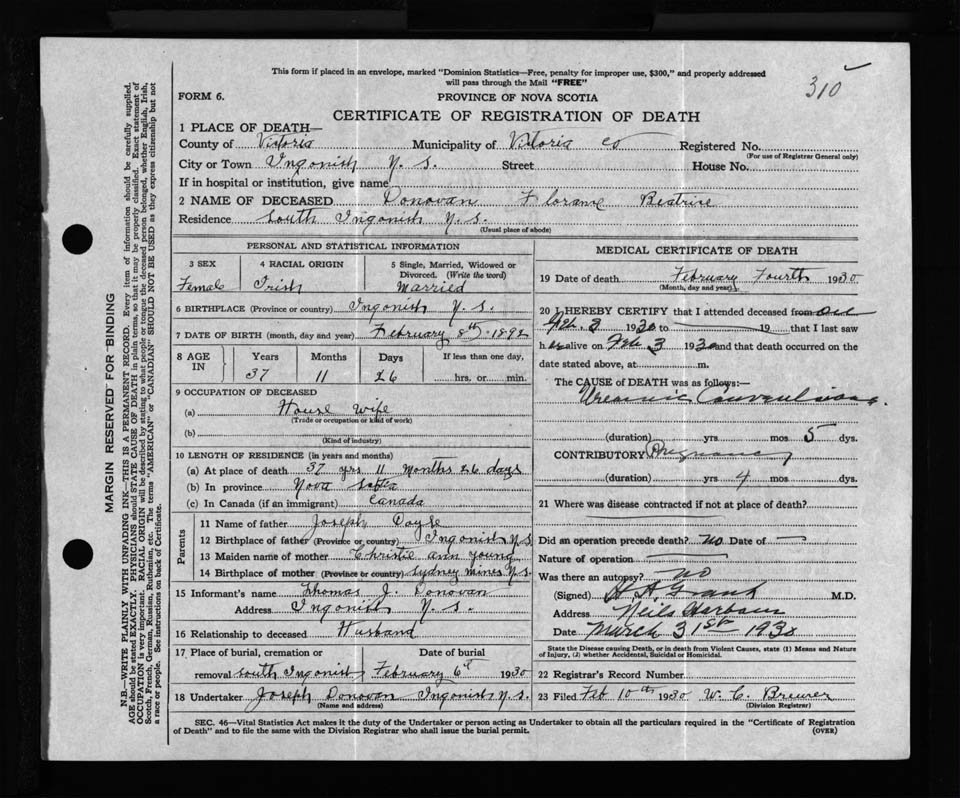 This form if placed in an envelope, marked "Dominion Statistics—Free, penalty for improper use, $300," and properly addressed
will pass through the Mail "FREE"
310
FORM 6.
PROVINCE OF NOVA SCOTIA
CERTIFICATE OF REGISTRATION OF DEATH
1 PLACE OF DEATH—
County of Victoria Municipality of Victoria Co Registered No.
(For use of Registrar General only)
City or Town Ingonish N. S. Street House No.
If in hospital or institution, give name
2 NAME OF DECEASED Donovan Florance Beatrice
Residence South Ingonish N. S.
(Usual place of abode)
PERSONAL AND STATISTICAL INFORMATION
3 SEX 4 RACIAL ORIGIN 5 Single, Married, Widowed or
Divorced. (Write the word)
Female Irish Married
6 BIRTHPLACE (Province or country) Ingonish N. S.
7 DATE OF BIRTH (month, day and year) February 8th 1892
8 AGE IN Years Months Days If less than one day,
37 11 26 hrs. or min.
9 OCCUPATION OF DECEASED
(a) House wife
(Trade or occupation or kind of work)
(b)
(Kind of industry)
10 LENGTH OF RESIDENCE (in years and months)
(a) At place of death 37 yrs 11 Months 26 days
(b) In province Nova Scotia
(c) In Canada (if an immigrant) Canada
Parents
11 Name of father Joseph Doyle
12 Birthplace of father (Province or country) Ingonish N.S.
13 Maiden name of mother Christie ann young
14 Birthplace of mother (Province or country) Sydney mines N.S.
15 Informant's name Thomas J. Donovan
Address Ingonish N. S.
16 Relationship to deceased Husband
17 Place of burial, cremation or Date of burial
removal South Ingonish February 6th 1930
18 Undertaker Joseph Donovan Ingonish N.S.
(Name and address)
MEDICAL CERTIFICATE OF DEATH
19 Date of death February Fourth 1930
(Month, day and year)
20 I HEREBY CERTIFY that I attended deceased from
Feb. 3 1930 to 19 that I last saw
h alive on Feb 3 1930 and that death occurred on the
date stated above, at m.
The CAUSE of DEATH was as follows:—
Uraemic Convulsions.
(duration) yrs mos 5 dys.
CONTRIBUTORY Pregnancy
(duration) yrs 4 mos dys.
21 Where was disease contracted if not at place of death?
Did an operation precede death? no Date of —
Nature of operation
Was there an autopsy? no
(Signed) M.D.
Address Neils Harbour
Date March 31st 1930
State the Disease causing Death, or in death from Violent Causes, state (1) Means and Nature
of Injury, (2) whether Accidental, Suicidal or Homicidal.
22 Registrar's Record Number
23 Filed Feb 10th 1930 W. C. Brewer
(Division Registrar)
SEC. 46—Vital Statistics Act makes it the duty of the Undertaker or person acting as Undertaker to obtain all the particulars required in the "Certificate of Registration
of Death" and to file the same with the Division Registrar who shall issue the burial permit.
(OVER)
MARGIN RESERVED FOR BINDING
N.B.—WRITE PLAINLY WITH UNFADING INK—THIS IS A PERMANENT RECORD. Every item of information should be carefully supplied.
AGE should be stated EXACTLY. PHYSICIANS should STATE CAUSE OF DEATH in plain terms, so that it may be properly classified. Exact statement of
OCCUPATION is very important. RACIAL ORIGIN will be described by stating to what people or tongue the deceased person belonged, whether English, Irish,
Scotch, French, German, Russian, Ruthenian, etc. The terms "AMERICAN" or "CANADIAN" SHOULD NOT BE USED as they express citizenship but not
a race or people. See instructions on back of Certificate.